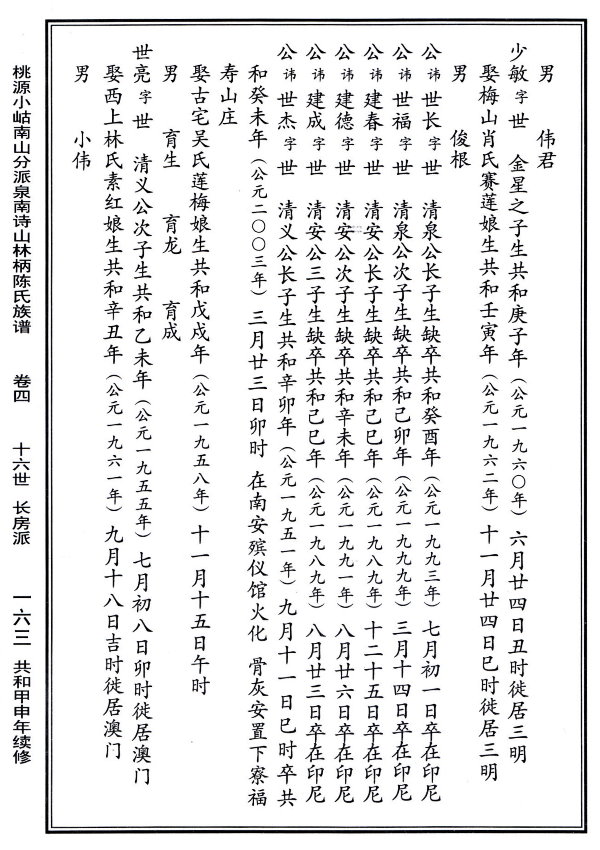 男　伟君
少敏字世　金星之子生共和庚子年（公元一九六〇年）六月廿四日丑时徙居三明
娶梅山肖氏赛莲娘生共和壬寅年（公元一九六二年）十一月廿四日巳时徙居三明
男　俊根
公讳世长字世　清泉公长子生缺卒共和癸酉年（公元一九九三年）七月初一日卒在印尼
公讳世福字世　清泉公次子生缺卒共和己卯年（公元一九九九年）三月十四日卒在印尼
公讳建春字世　清安公长子生缺卒共和己巳年（公元一九八九年）十二十五日卒在印尼
公讳建德字世　清安公次子生缺卒共和辛未年（公元一九九一年）八月廿六日卒在印尼
公讳建成字世　清安公三子生缺卒共和己巳年（公元一九八九年）八月廿三日卒在印尼
公讳世杰字世　清义公长子生共和辛卯年（公元一九五一年）九月十一日巳时卒共
和癸未年（公元二〇〇三年）三月廿三日卯时　在南安殡仪馆火化　骨灰安置下寮福
寿山庄
娶古宅吴氏莲梅娘生共和戊戌年（公元一九五八年）十一月十五日午时
男　育生　育龙　育成
世亮字世　清义公次子生共和乙未年（公元一九五五年）七月初八日卯时徙居澳门
娶西上林氏素红娘生共和辛丑年（公元一九六一年）九月十八日吉时徙居澳门
男　小伟
桃源小岵南山分派泉南诗山林柄陈氏族谱　卷四　十六世　长房派　一六三　共和甲申年续修